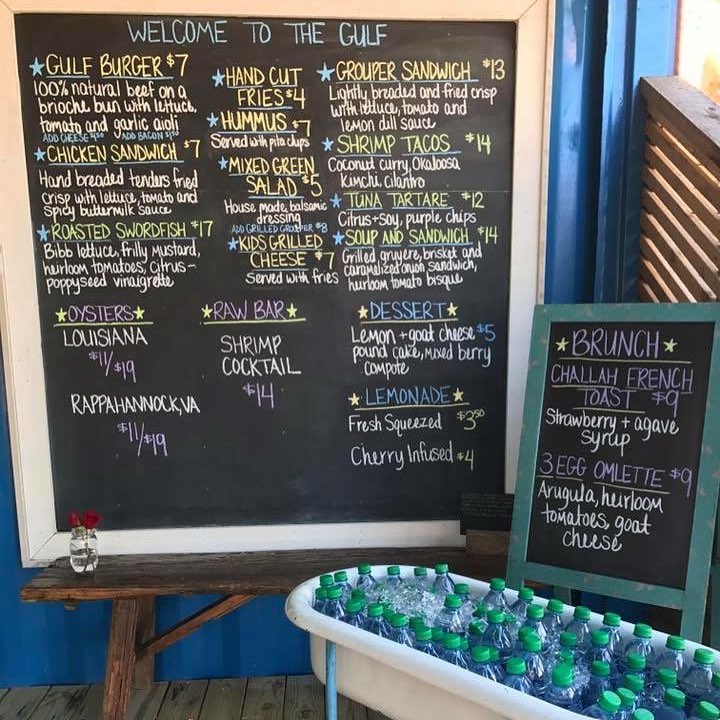 WELCOME TO THE GULF
GULF BURGER $7
100% natural beef on a
brioche bun with lettuce,
tomato and garlic aioli
ADD CHEESE $1.50 ADD BACON $1.50
CHICKEN SANDWICH $7
Hand breaded tenders fried
crisp with lettuce, tomato and
spicy buttermilk sauce
ROASTED SWORDFISH $17
Bibb lettuce, frilly mustard,
heirloom tomatoes, citrus-
poppyseed vinaigrette
HAND CUT
FRIES $4
HUMMUS $7
Served with pita chips
MIXED GREEN
SALAD $5
House made, balsamic
dressing
ADD GRILLED GROUPER $8
KIDS GRILLED
CHEESE $7
Served with fries
GROUPER SANDWICH $13
Lightly breaded and fried crisp
with lettuce, tomato and
lemon dill sauce
SHRIMP TACOS $14
Coconut curry, Okaloosa
Kimchi, cilantro
TUNA TARTARE $12
Citrus + soy, purple chips
SOUP AND SANDWICH $14
Grilled gruyere, brisket and
caramelized onion sandwich,
heirloom tomato bisque
OYSTERS
LOUISIANA
$11/$19
RAPPAHANNOCK, VA
$11/$19
RAW BAR
SHRIMP
COCKTAIL
$14
DESSERT
Lemon + goat cheese $5
pound cake, mixed berry
compote
LEMONADE
Fresh Squeezed $3.50
Cherry Infused $4
BRUNCH
CHALLAH FRENCH
TOAST $9
Strawberry + agave
syrup
3 EGG OMLETTE $9
Arugula, heirloom
tomatoes, goat
cheese